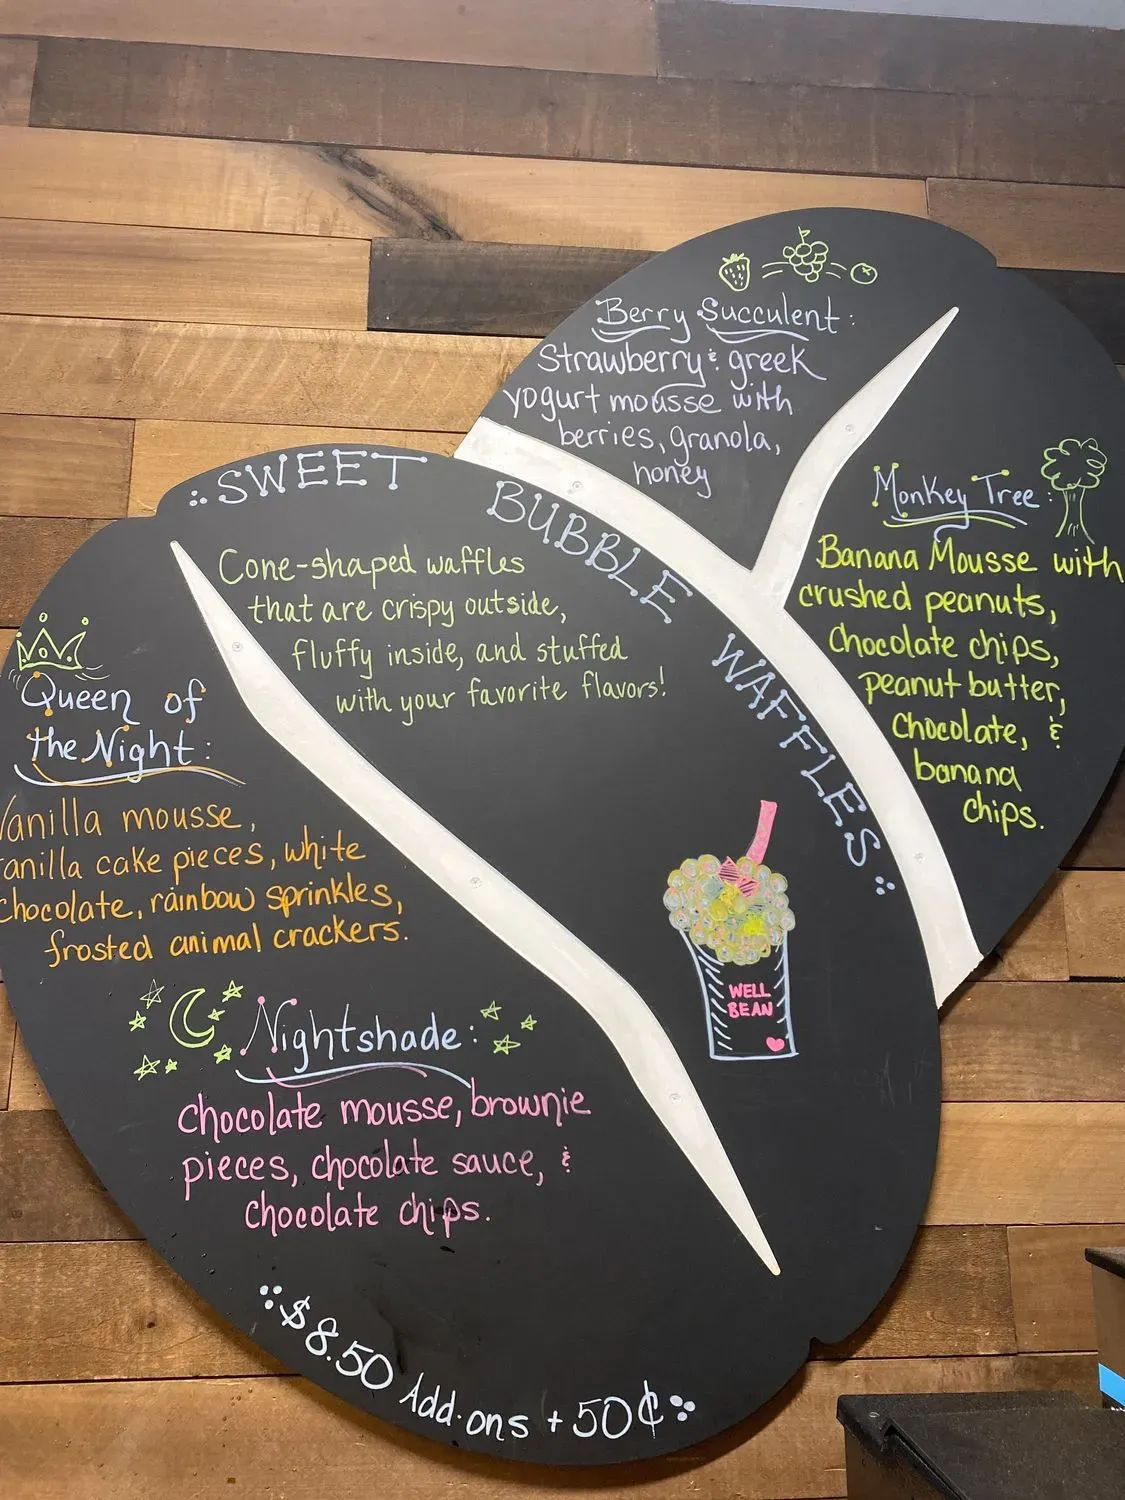 SWEET BUBBLE WAFFLES
Cone-shaped waffles
that are crispy outside,
fluffy inside, and stuffed
with your favorite flavors!
Berry Succulent:
Strawberry & greek
yogurt mousse with
berries, granola,
honey
Monkey Tree:
Banana Mousse with
crushed peanuts,
chocolate chips,
peanut butter,
chocolate, &
banana
chips.
Queen of
the Night:
Vanilla mousse,
vanilla cake pieces, white
chocolate, rainbow sprinkles,
frosted animal crackers.
Nightshade:
chocolate mousse, brownie
pieces, chocolate sauce, &
chocolate chips.
WELL
BEAN
$8.50 Add-ons +50¢